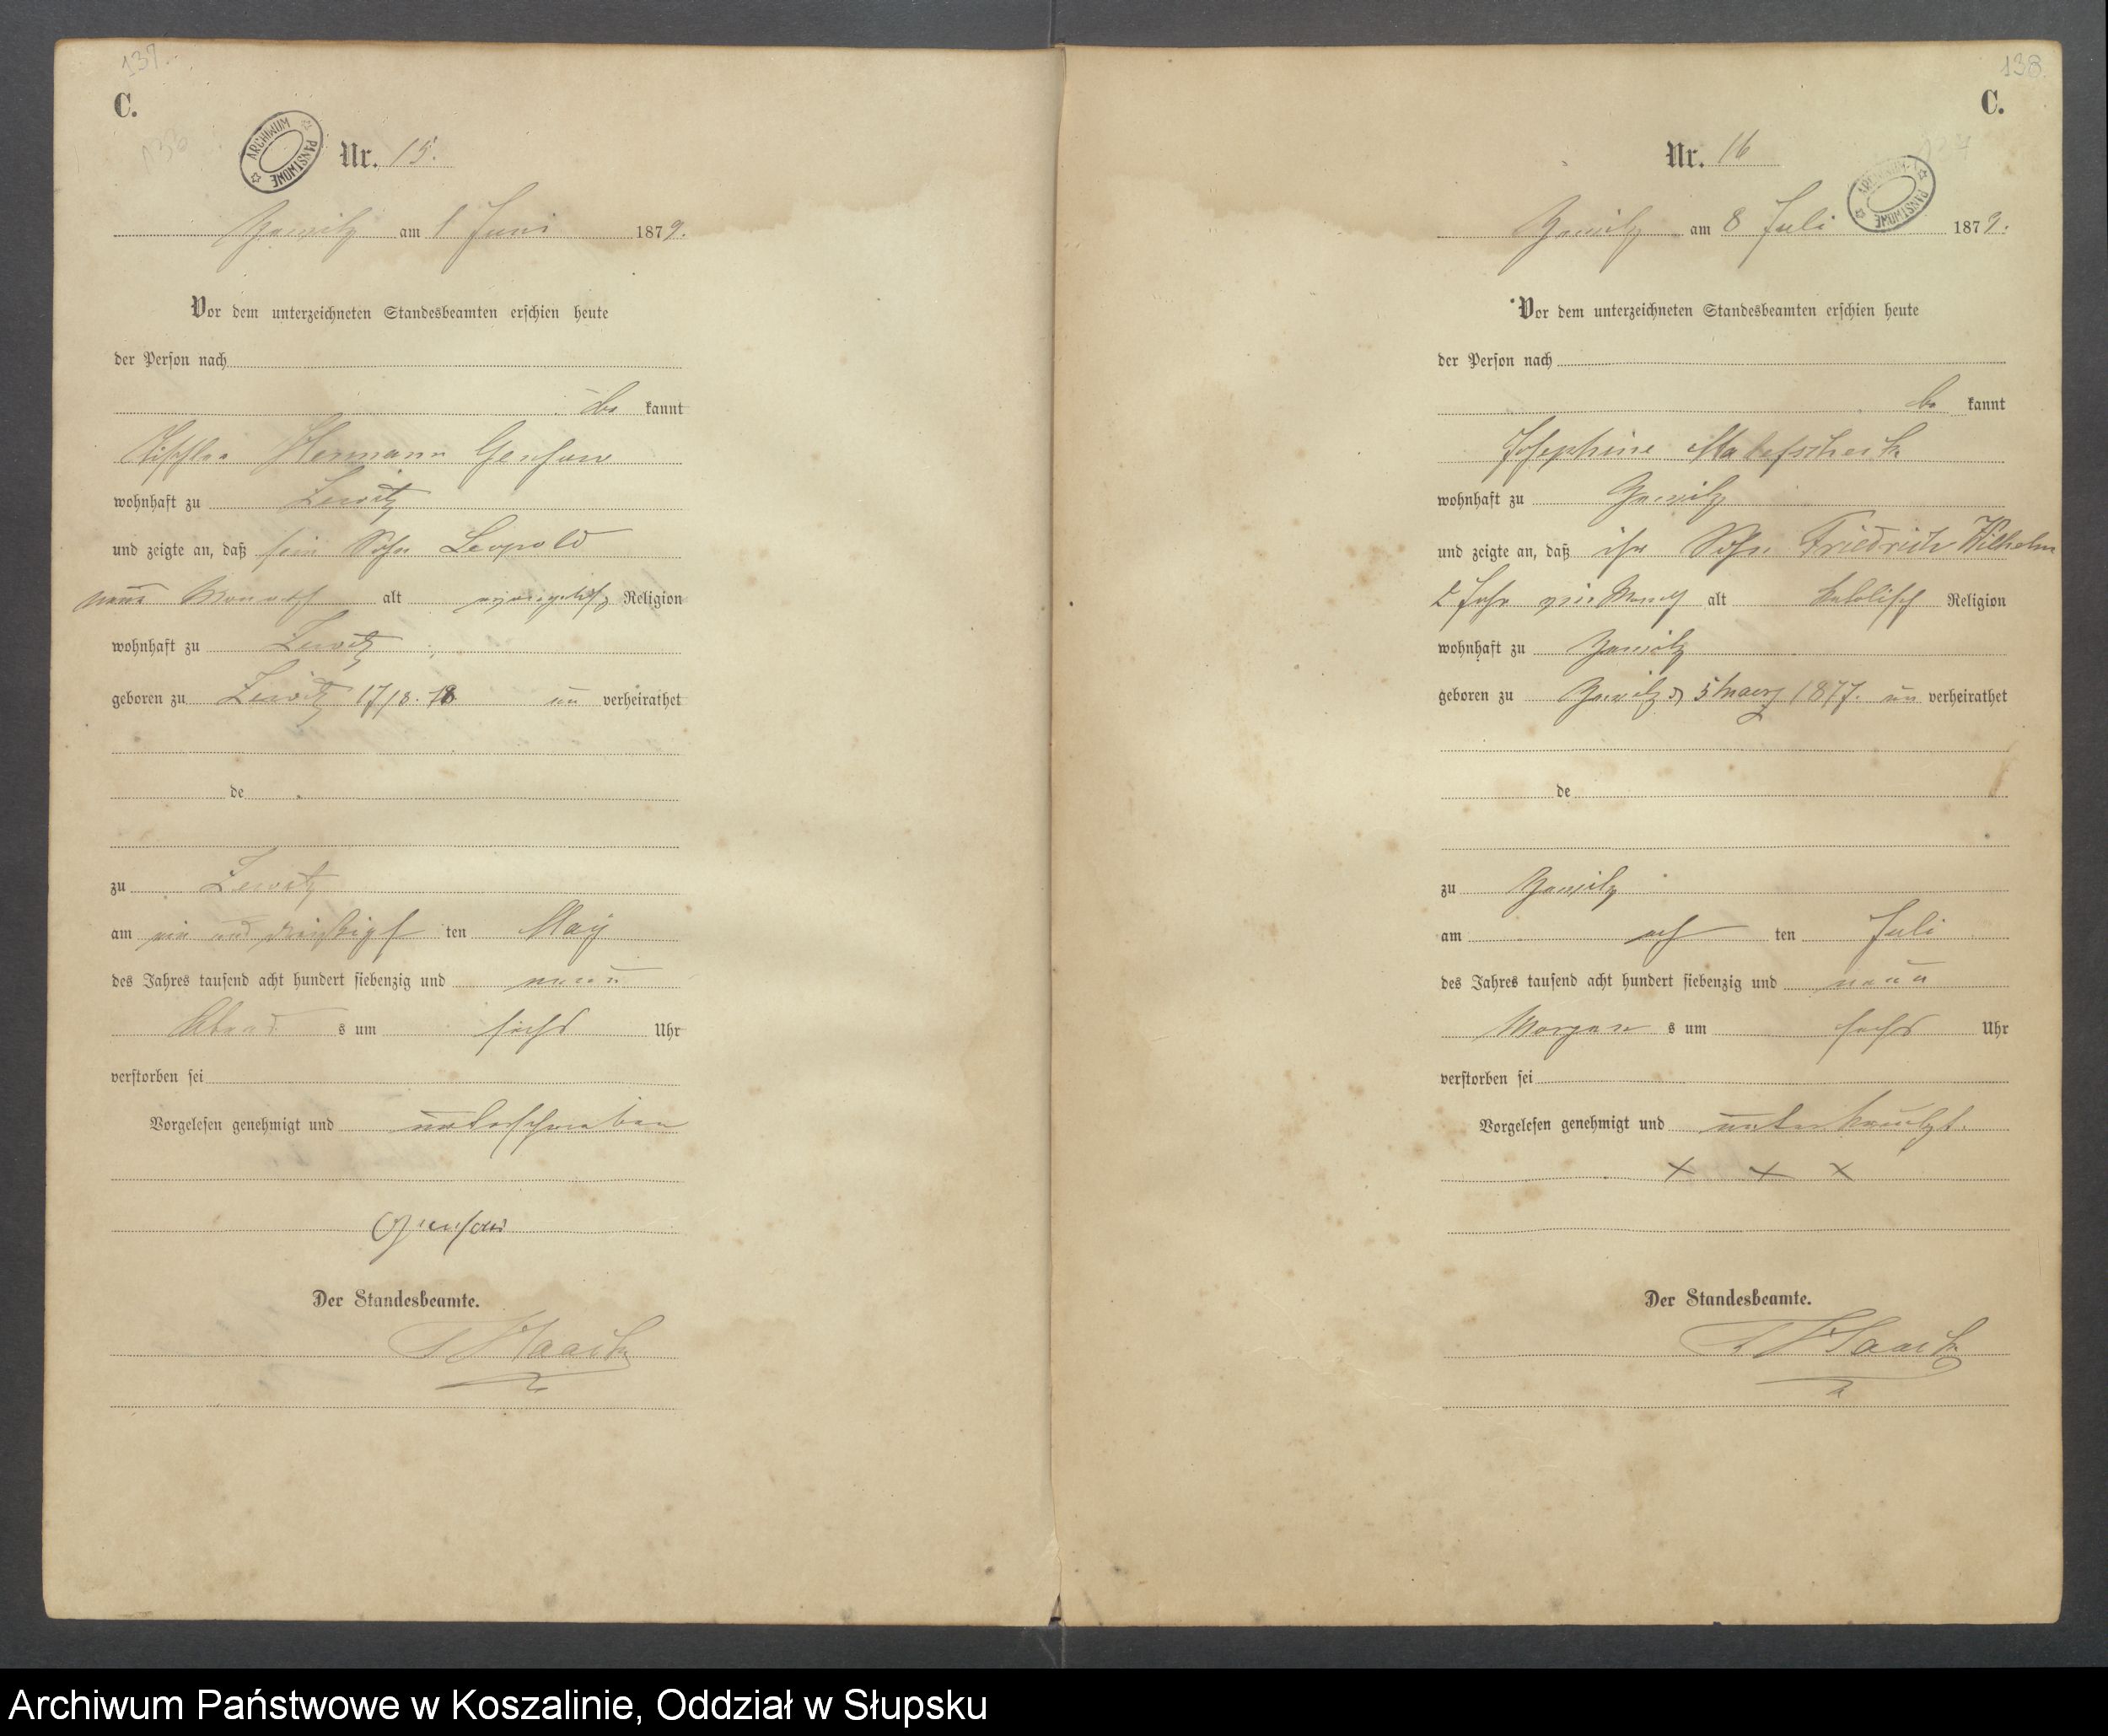 137.
C.
ARCHIWUM PAŃSTWOWE
Nr. 15.
am 1 Juni 1879.
Vor dem unterzeichneten Standesbeamten erschien heute
der Person nach
be kannt
Hermann Genfow
wohnhaft zu Zewitz
und zeigte an, daß sein Sohn Leopold
neun Monath alt evangelisch Religion
wohnhaft zu Zewitz
geboren zu Zewitz 17/8. 78 un verheirathet
de
zu Zewitz
am ein und dreißigst ten May
des Jahres tausend acht hundert siebenzig und neun
Abend s um sechs Uhr
verstorben sei
Vorgelesen genehmigt und unterschrieben
Genfow
Der Standesbeamte.
138.
C.
Nr. 16
ARCHIWUM PAŃSTWOWE
am 8 Juli 1879.
Vor dem unterzeichneten Standesbeamten erschien heute
der Person nach
be kannt
Josephine
wohnhaft zu
und zeigte an, daß ihr Sohn Friedrich Wilhelm
2 Jahr vier Monath alt katolisch Religion
wohnhaft zu
geboren zu 5 Maerz 1877. un verheirathet
de
zu
am ach ten Juli
des Jahres tausend acht hundert siebenzig und neun
Morgen s um sechs Uhr
verstorben sei
Vorgelesen genehmigt und unterkreuzt.
x x x
Der Standesbeamte.
Archiwum Państwowe w Koszalinie, Oddział w Słupsku